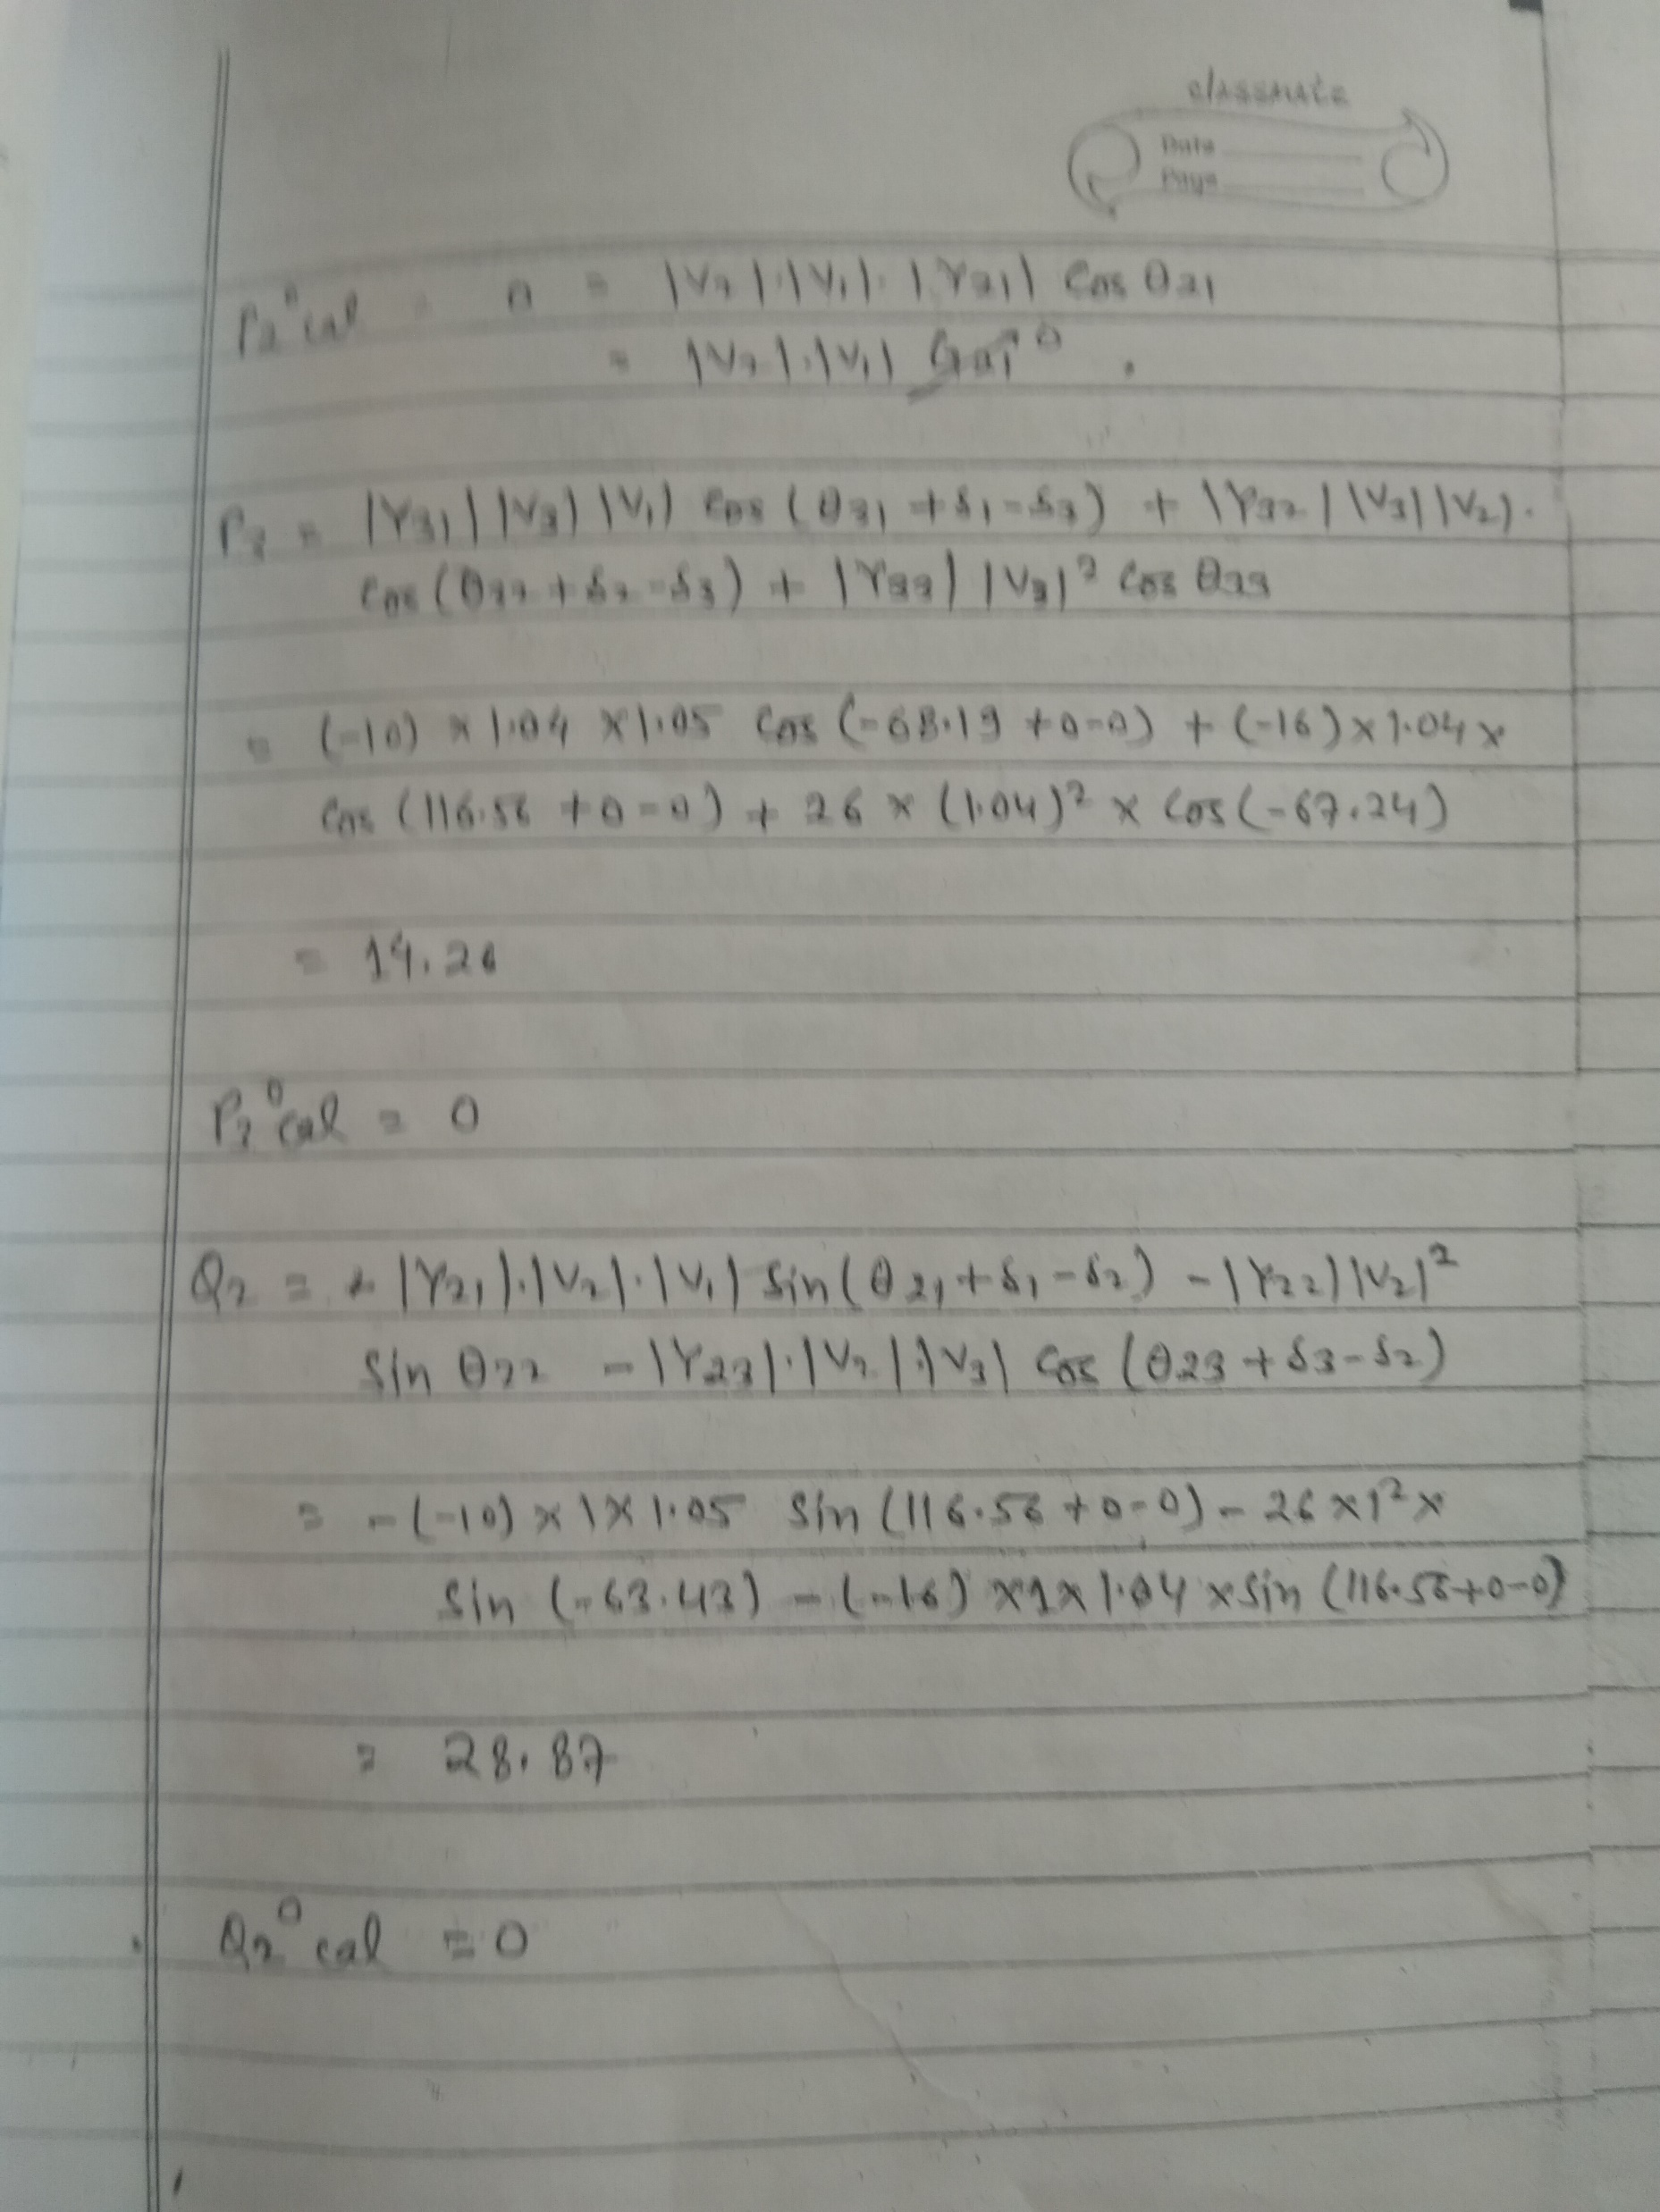 classmate
Date
Page
P₂⁰cal = 0 = |V₂|.|V₁|.|Y₂₁| cos θ₂₁
= |V₂|.|V₁|
P₃ = |Y₃₁||V₃||V₁| cos (θ₃₁ + δ₁ - δ₃) + |Y₃₂||V₃||V₂|.
cos (θ₃₂ + δ₂ - δ₃) + |Y₃₃||V₃|² cos θ₃₃
= (-10) × 1.04 × 1.05 cos (-68.19 + 0 - 0) + (-16) × 1.04 ×
cos (116.56 + 0 - 0) + 26 × (1.04)² × cos (-67.24)
= 14.26
P₃⁰cal = 0
Q₂ = + |Y₂₁|.|V₂|.|V₁| sin (θ₂₁ + δ₁ - δ₂) - |Y₂₂||V₂|²
sin θ₂₂ - |Y₂₃|.|V₂|.|V₃| cos (θ₂₃ + δ₃ - δ₂)
= - (-10) × 1 × 1.05 sin (116.56 + 0 - 0) - 26 × 1² ×
sin (-63.43) - (-16) × 1 × 1.04 × sin (116.56 + 0 - 0)
= 28.87
Q₂⁰ cal = 0